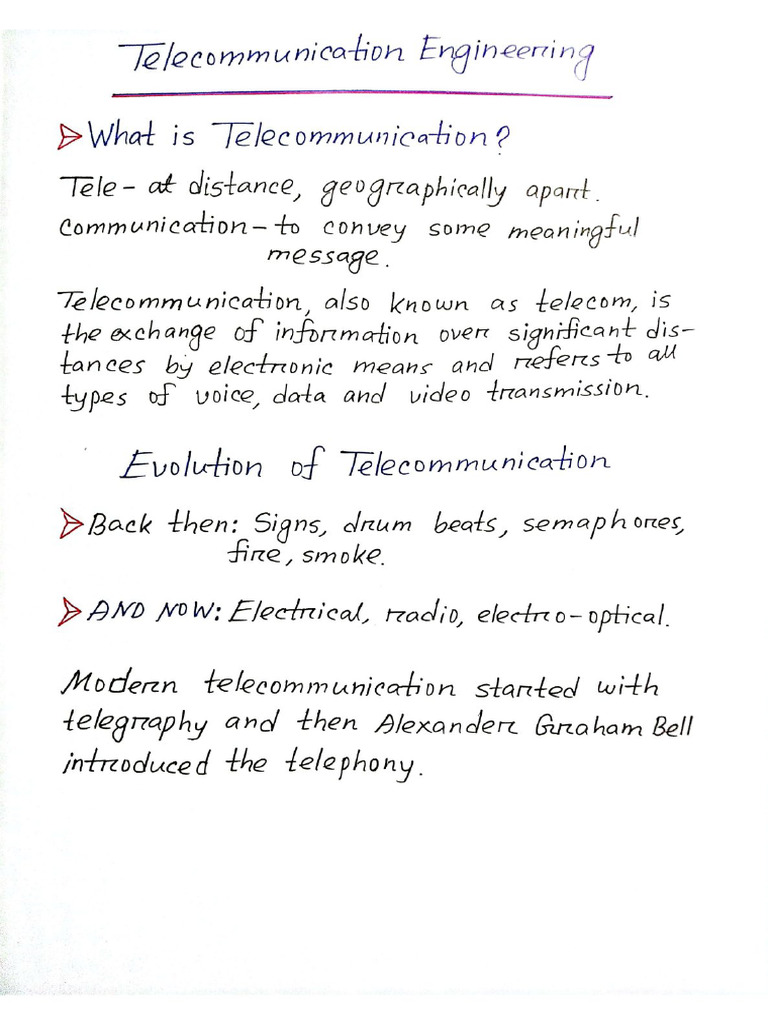 Telecommunication Engineering
What is Telecommunication?
Tele- at distance, geographically apart.
Communication - to convey some meaningful
message.
Telecommunication, also known as telecom, is
the exchange of information over significant dis-
tances by electronic means and refers to all
types of voice, data and video transmission.
Evolution of Telecommunication
Back then: Signs, drum beats, semaphores,
fire, smoke.
AND NOW: Electrical, radio, electro-optical.
Modern telecommunication started with
telegraphy and then Alexander Graham Bell
introduced the telephony.